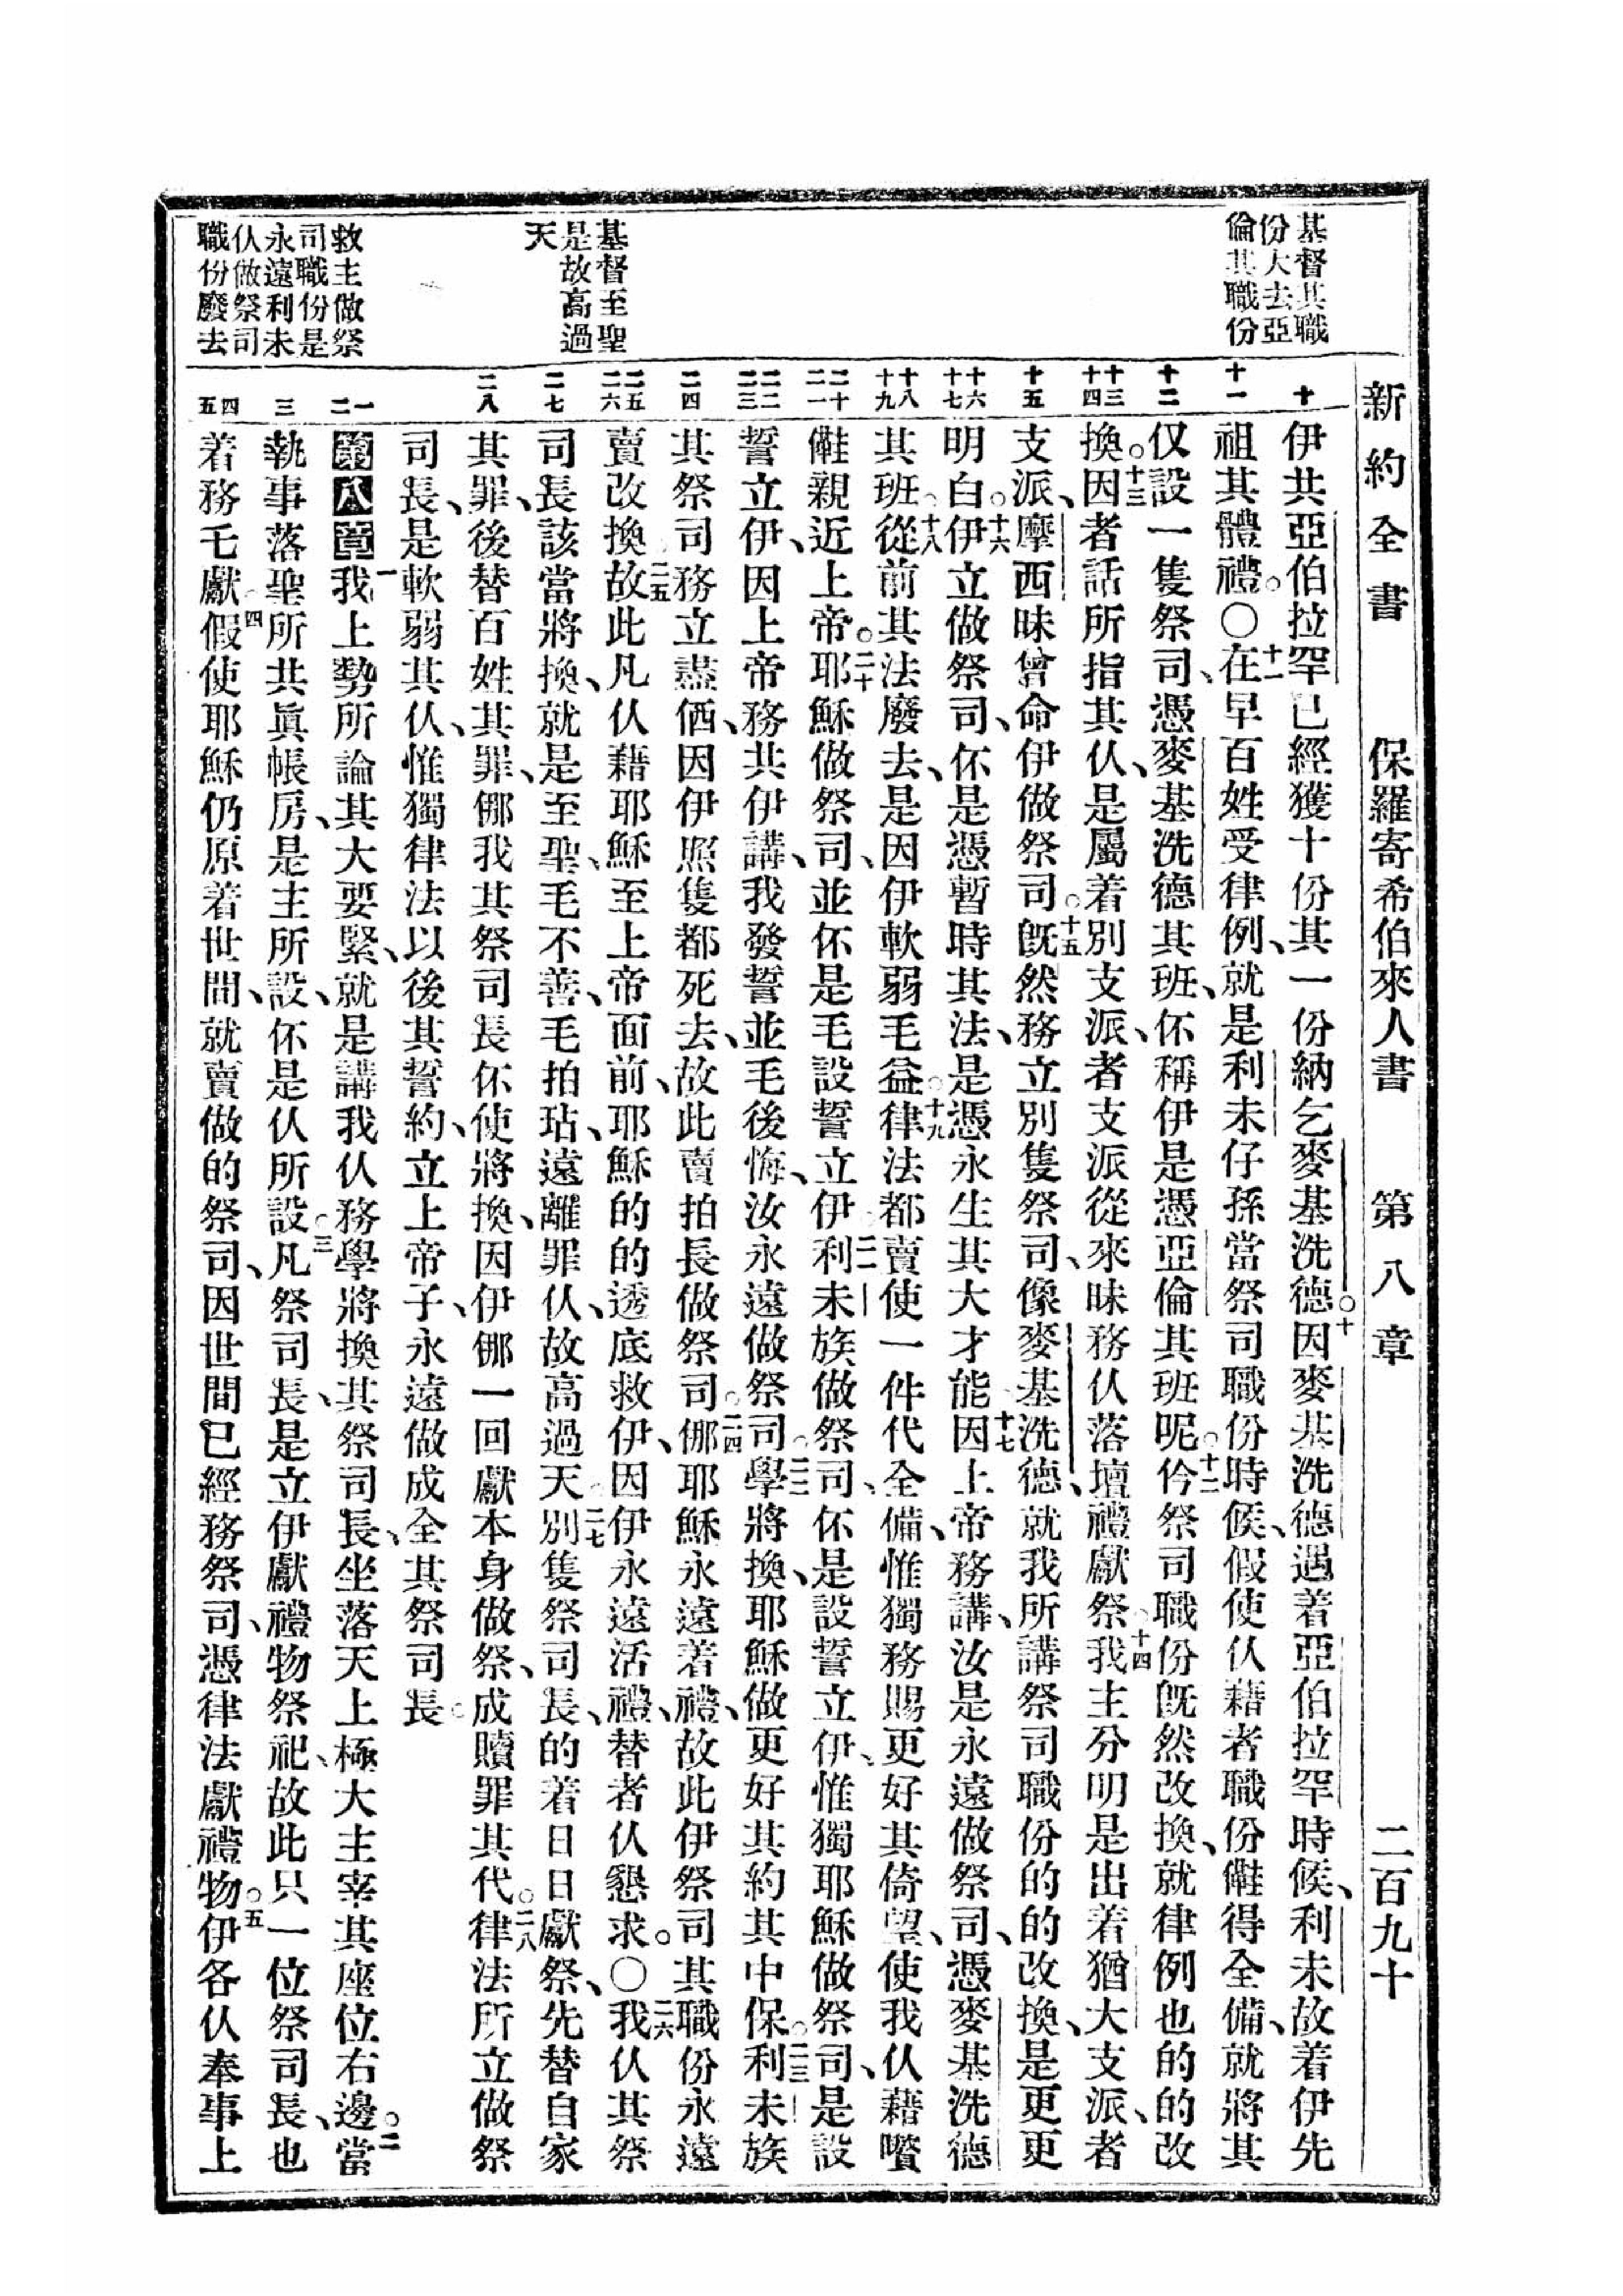 新約全書 保羅寄希伯來人書 第八章 二百九十
基督其職
份大去亞
倫其職份
基督至聖
是故高過
天
救主做祭
司職份是
永遠利未
仈做祭司
職份廢去
十
十一
十二
十三 十四
十五
十六 十七
十八 十九
二十 二一
二二 二三
二四
二五 二六
二七
二八
一 二
三
四 五
伊共亞伯拉罕已經獲十份其一份納乞麥基洗德。十因麥基洗德遇着亞伯拉罕時候、利未故着伊先
祖其體禮。〇十一在早百姓受律例、就是利未仔孫當祭司職份時候、假使仈藉者職份𣍐得全備、就將其
仅設一隻祭司、憑麥基洗德其班、伓稱伊是憑亞倫其班呢。十二仱祭司職份旣然改換、就律例也的的改
換。十三因者話所指其仈、是屬着別支派、者支派從來昧務仈落壇禮獻祭。十四我主分明是出着猶大支派、者
支派、摩西昧曾命伊做祭司。十五旣然務立別隻祭司、像麥基洗德、就我所講祭司職份的的改換、是更更
明白。十六伊立做祭司、伓是憑暫時其法、是憑永生其大才能。十七因上帝務講、汝是永遠做祭司、憑麥基洗德
其班。十八從前其法廢去、是因伊軟弱毛益。十九律法都賣使一件代全備、惟獨務賜更好其倚望、使我仈藉嚽
𣍐親近上帝。二十耶穌做祭司、並伓是毛設誓立伊。二一利未族做祭司、伓是設誓立伊、惟獨耶穌做祭司、是設
誓立伊、因上帝務共伊講、我發誓並毛後悔、汝永遠做祭司。二二學將換、耶穌做更好其約其中保。二三利未族
其祭司務立盡価、因伊照隻都死去、故此賣拍長做祭司。二四𠁞耶穌永遠着禮、故此伊祭司其職份永遠
賣改換。二五故此凡仈藉耶穌至上帝面前、耶穌的的透底救伊、因伊永遠活禮、替者仈懇求。〇二六我仈其祭
司長該當將換、就是至聖、毛不善、毛拍玷、遠離罪仈、故高過天。二七別隻祭司長、的着日日獻祭、先替自家
其罪、後替百姓其罪、𠁞我其祭司長伓使將換、因伊𠁞一回獻本身做祭、成贖罪其代。二八律法所立做祭
司長、是軟弱其仈、惟獨律法以後其誓約、立上帝子、永遠做成全其祭司長。
第八章一我上勢所論其大要緊、就是講我仈務學將換其祭司長、坐落天上極大主宰其座位右邊。二當
執事落聖所共眞帳房、是主所設、伓是仈所設。三凡祭司長、是立伊獻禮物祭祀、故此只一位祭司長、也
着務乇獻。四假使耶穌仍原着世間、就賣做的祭司、因世間已經務祭司、憑律法獻禮物。五伊各仈奉事上